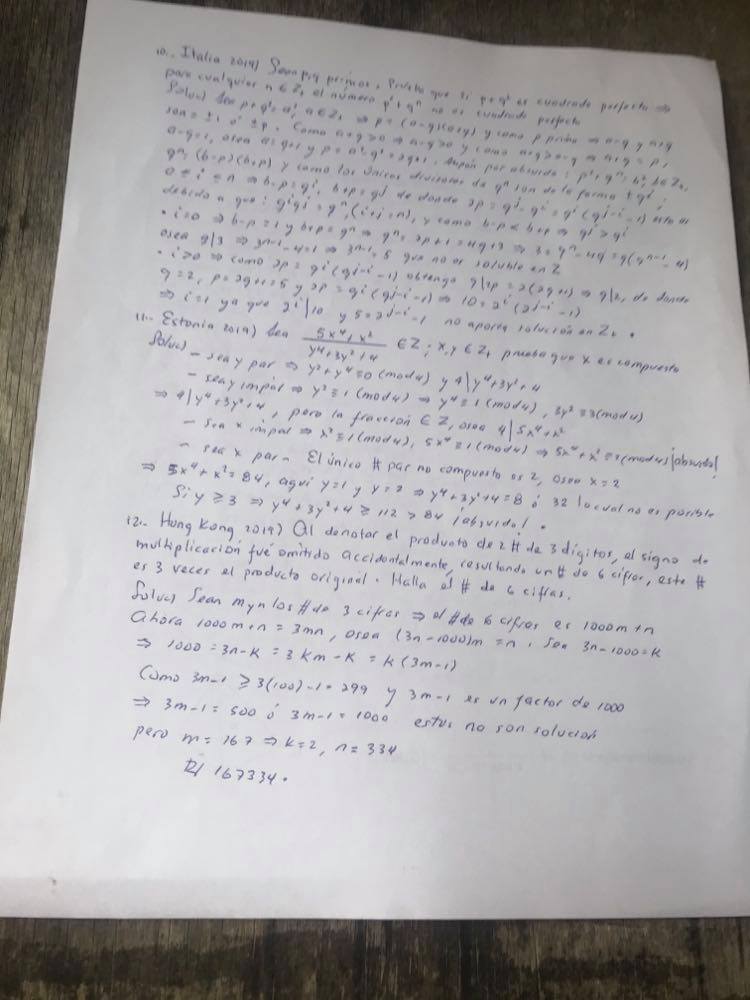 10.- Italia 2019) Sean p, q primos, Prueba que si p+q² es cuadrado perfecto ⇒
para cualquier n ∈ Z₊ el número p²+qⁿ no es cuadrado perfecto
Soluc) Sea p+q²=a², a∈Z₊ ⇒ p = (a-q)(a+q) y como p primo ⇒ a-q y a+q
son = ±1 ó ±p. Como a+q>0 ⇒ a-q>0 y como a+q>a-q ⇒ a+q = p,
a-q=1, osea a=q+1 y p = a²-q²=2q+1. Supón por absurdo: p²+qⁿ=b², b∈Z₊
qⁿ=(b-p)(b+p) y como los únicos divisores de qⁿ son de la forma ±qⁱ,
0≤i≤n ⇒ b-p=qⁱ, b+p=qʲ de donde 2p=qʲ-qⁱ=qⁱ(qʲ⁻ⁱ-1) esto es
debido a que: qⁱqʲ=qⁿ, (i+j=n), y como b-p<b+p ⇒ qʲ>qⁱ
• i=0 ⇒ b-p=1 y b+p=qⁿ ⇒ qⁿ=2p+1=4q+3 ⇒ 3=qⁿ-4q=q(qⁿ⁻¹-4)
osea q|3 ⇒ 3ⁿ⁻¹-4=1 ⇒ 3ⁿ⁻¹=5 que no es soluble en Z
• i>0 ⇒ como 2p = qⁱ(qʲ⁻ⁱ-1) obtengo q|2p=2(2q+1) ⇒ q|2, de donde
q=2, p=2q+1=5 y 2p=qⁱ(qʲ⁻ⁱ-1) ⇒ 10=2ⁱ(2ʲ⁻ⁱ-1)
⇒ i=1 ya que 2ⁱ|10 y 5=2ʲ⁻ⁱ-1 no aporta solución en Z₊ •
11.- Estonia 2019) Sea (5x⁴+x²)/(y⁴+3y²+4) ∈ Z; x,y ∈ Z₊ prueba que x es compuesto
Soluc)
- sea y par ⇒ y²≡y⁴≡0 (mod 4) y 4|y⁴+3y²+4
- sea y impar ⇒ y²≡1 (mod 4) ⇒ y⁴≡1 (mod 4), 3y²≡3 (mod 4)
⇒ 4|y⁴+3y²+4, pero la fracción ∈ Z, osea 4|5x⁴+x²
- sea x impar ⇒ x²≡1 (mod 4), 5x⁴≡1 (mod 4) ⇒ 5x⁴+x²≡2 (mod 4) ¡absurdo!
- sea x par - El único # par no compuesto es 2, osea x=2
⇒ 5x⁴+x²=84, aquí y=1 y y=2 ⇒ y⁴+3y²+4=8 ó 32 lo cual no es posible
Si y≥3 ⇒ y⁴+3y²+4 ≥ 112 > 84 ¡absurdo! •
12.- Hong Kong 2019) Al denotar el producto de 2 # de 3 dígitos, el signo de
multiplicación fué omitido accidentalmente, resultando un # de 6 cifras, este #
es 3 veces el producto original. Halla el # de 6 cifras.
Soluc) Sean m y n los # de 3 cifras ⇒ el # de 6 cifras es 1000m+n
Ahora 1000m+n = 3mn, osea (3n-1000)m=n, sea 3n-1000=k
⇒ 1000 = 3n-k = 3km-k = k(3m-1)
Como 3m-1 ≥ 3(100)-1=299 y 3m-1 es un factor de 1000
⇒ 3m-1=500 ó 3m-1=1000 estos no son solución
pero m=167 ⇒ k=2, n=334
R/ 167334.